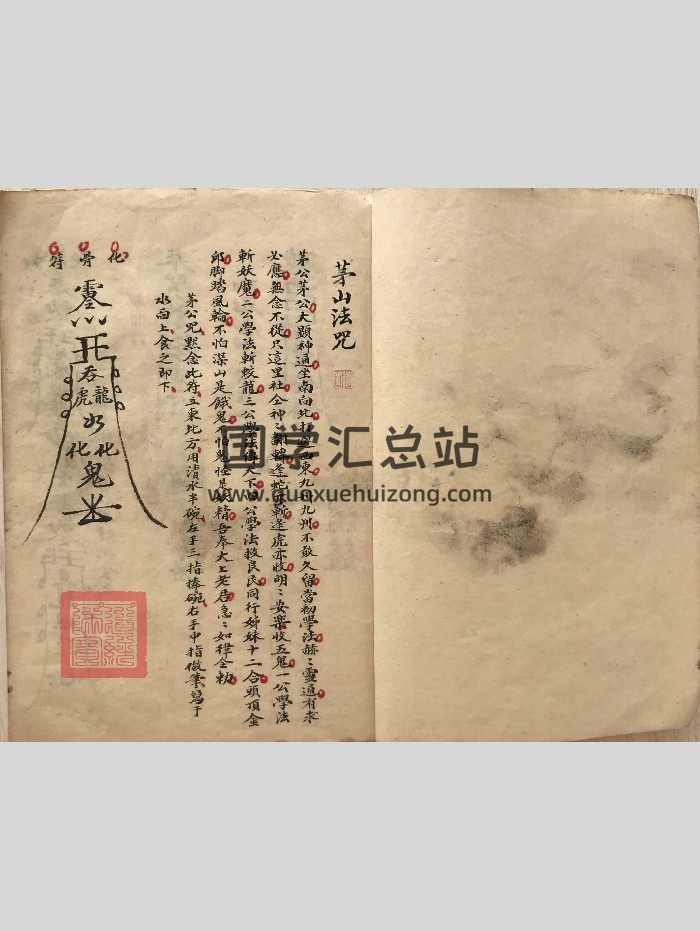 茅山法咒
茅公茅公大顯神通坐南向北打
東九州九州不敢久留當初學法赫〻靈通有求
必應無念不從只這里社令神〻
逢蛇
斬逢虎亦收明〻安樂收五鬼一公學法
斬妖魔二公學法斬蛟龍三公學法
天下四公學法救良民同行姊妹十二合頭頂金
邱脚踏風輪不怕深山是餓鬼
怕鬼怪是
精吾奉太上老君急〻如律令勅
茅公咒默念此符立東北方用清水半碗左手三指捧碗右手中指做筆寫于
水面上食之即下
化骨符
吞龍
虎
化化
鬼
国学汇总站
www.guoxuehuizong.com